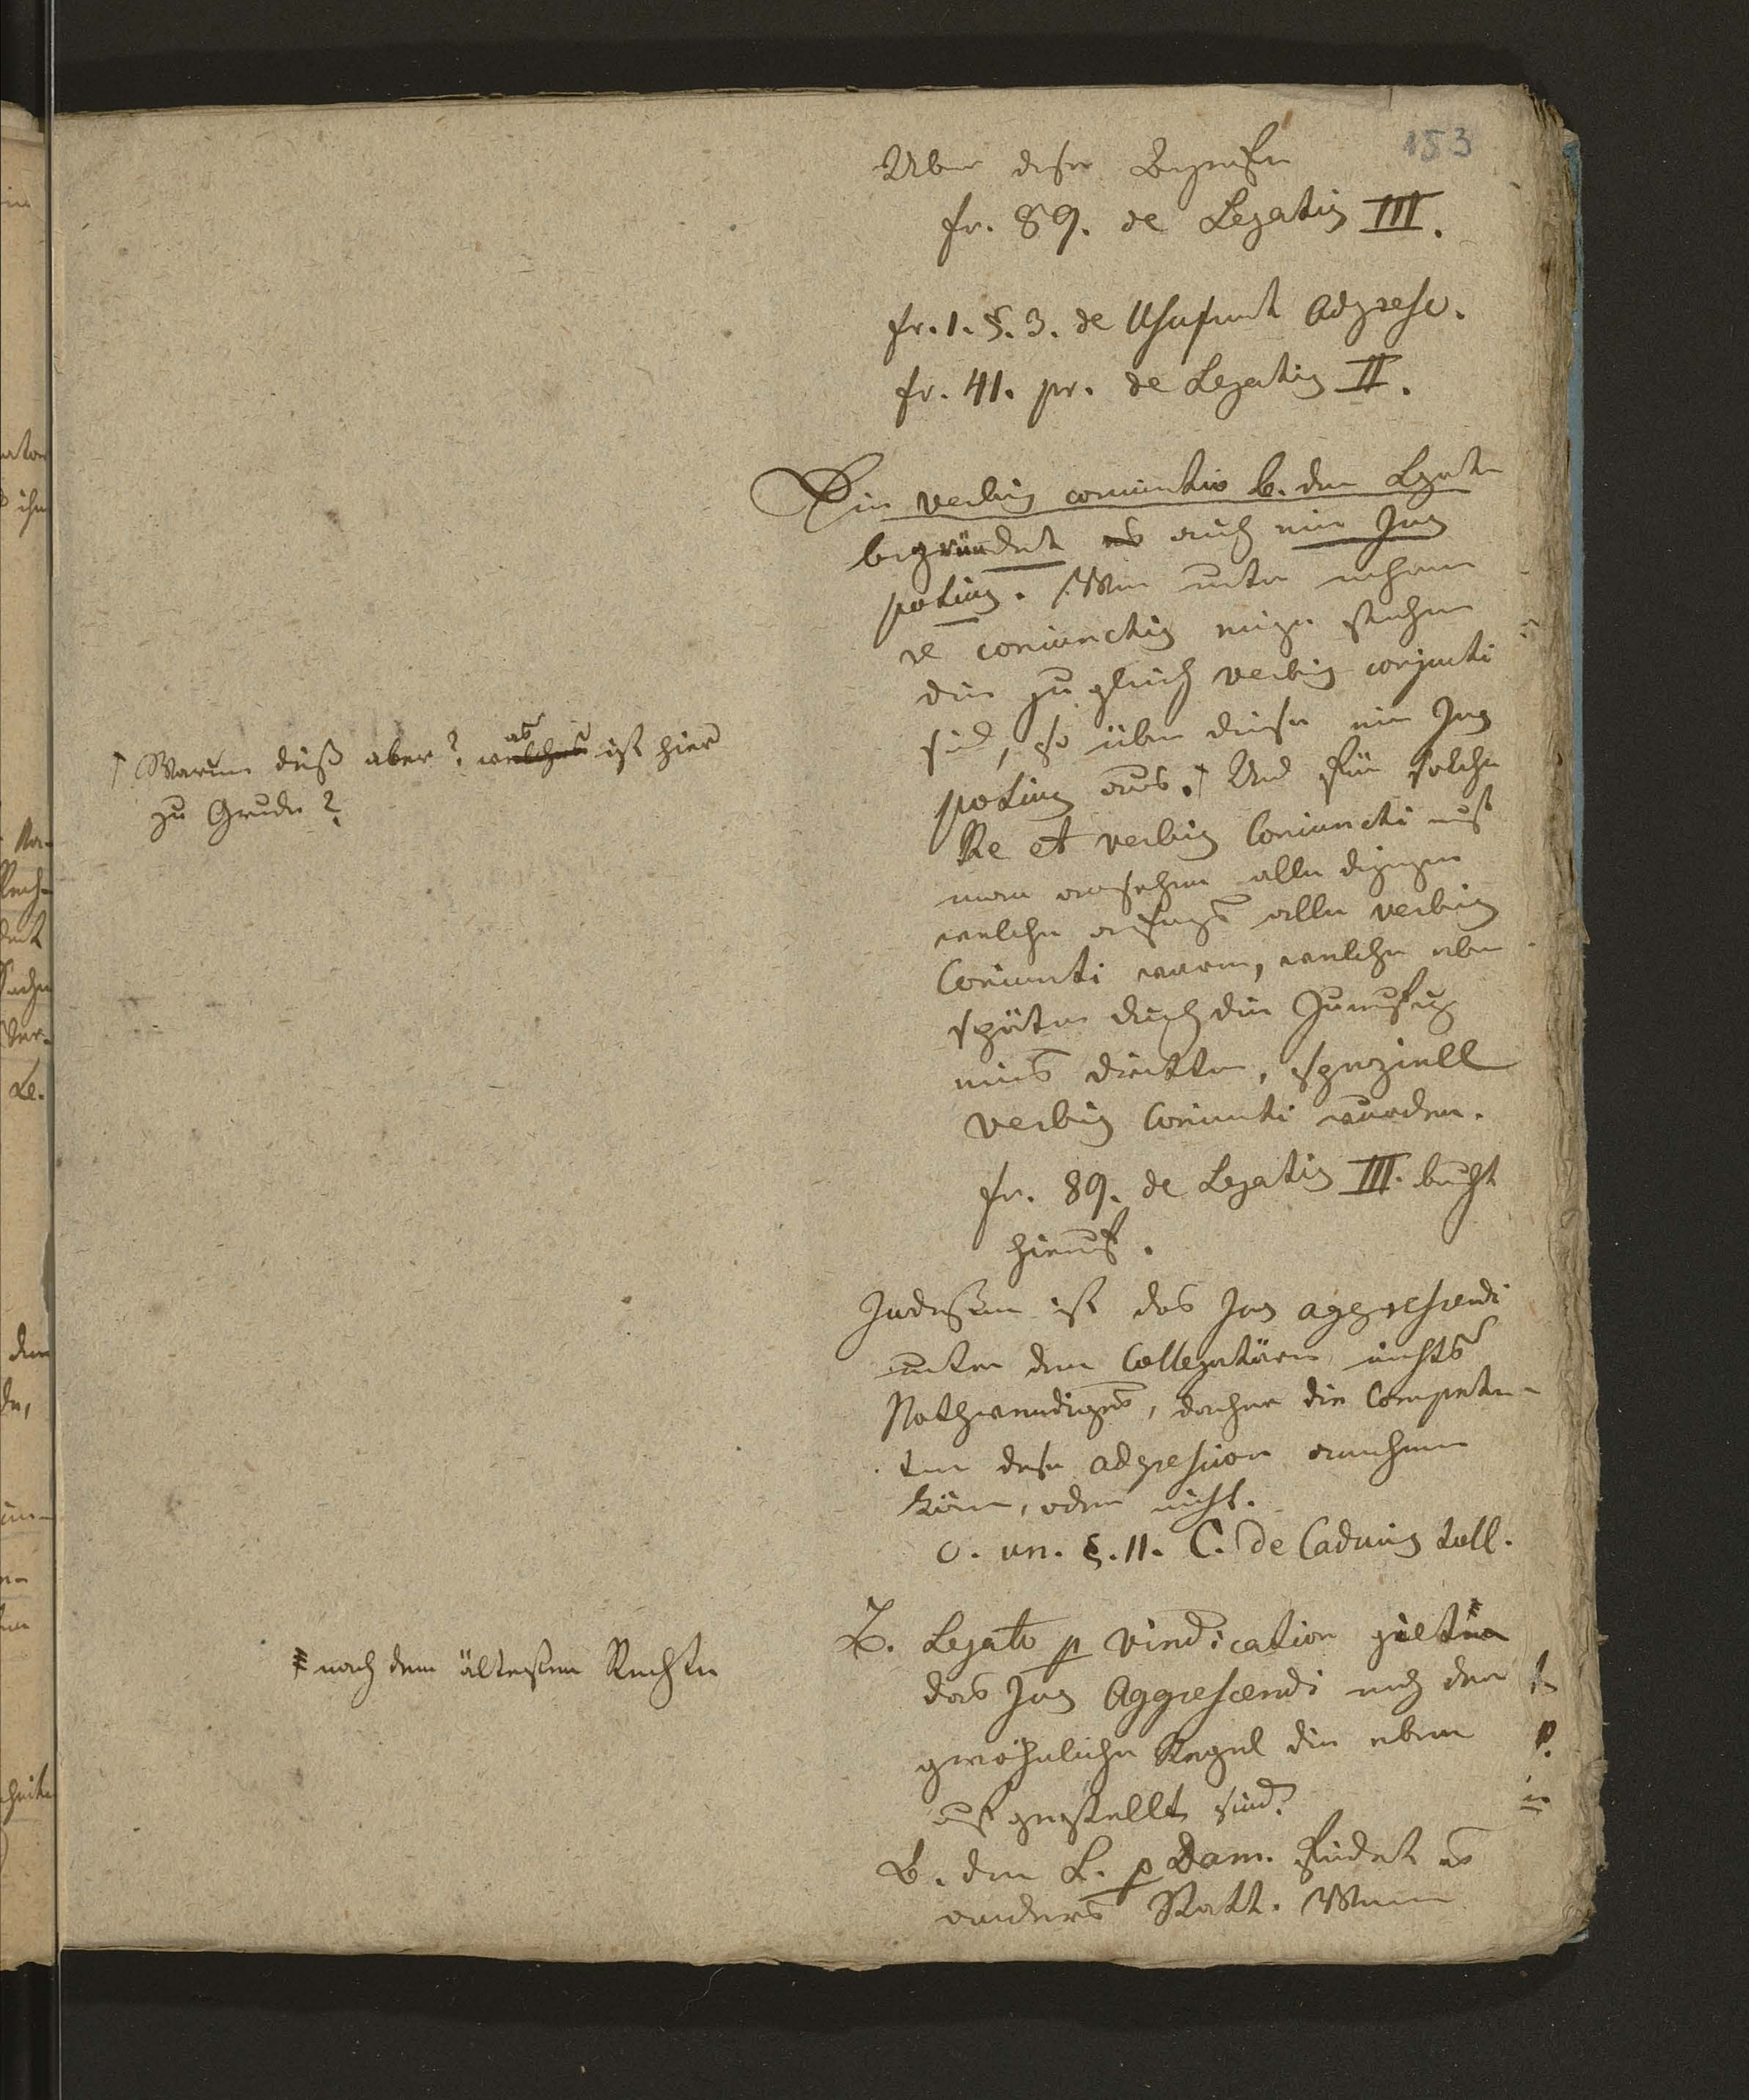 153
Uber diese Begriffe
fr. 89. de Legatis III.
fr. 1. §. 3. de Usufruct Adgresc.
fr. 41. pr. de Legatis II.
Die verbis coniunctio b. den Legaten
begründet es auch ein Jus
potius. Wenn unter mehrern
re coniunctis einige stehen
die zu gleich verbis conjuncti
sind, so üben diese ein Jus
potius aus.† Und für solche
Re et verbis Coniuncti muß
man ansehen alle diejenigen
welche anfangs alle verbis
Coniuncti waren, welche aber
später durch die
eines dritten, speziell
verbis Coniuncti wurden.
fr. 89. de Legatis III. beruht
hierauf.
Indessen ist das Jus aggrescendi
unter den Collegatären nichts
Nothwendiges, daher die Competen-
ten diese adgrescion annehmen
können, oder nicht.
c. un. §. 11. C. de Caducis toll.
B. Legato p vindication gielt
das Jus Aggrescendi nach der
gewöhnlichen Regel die oben
aufgestellt sind.
B. den L. p Dam. findet es
anders Statt. Wenn
† Warum dieß aber? was welches ist hier
zu Grunde?
nach dem ältesten Rechte